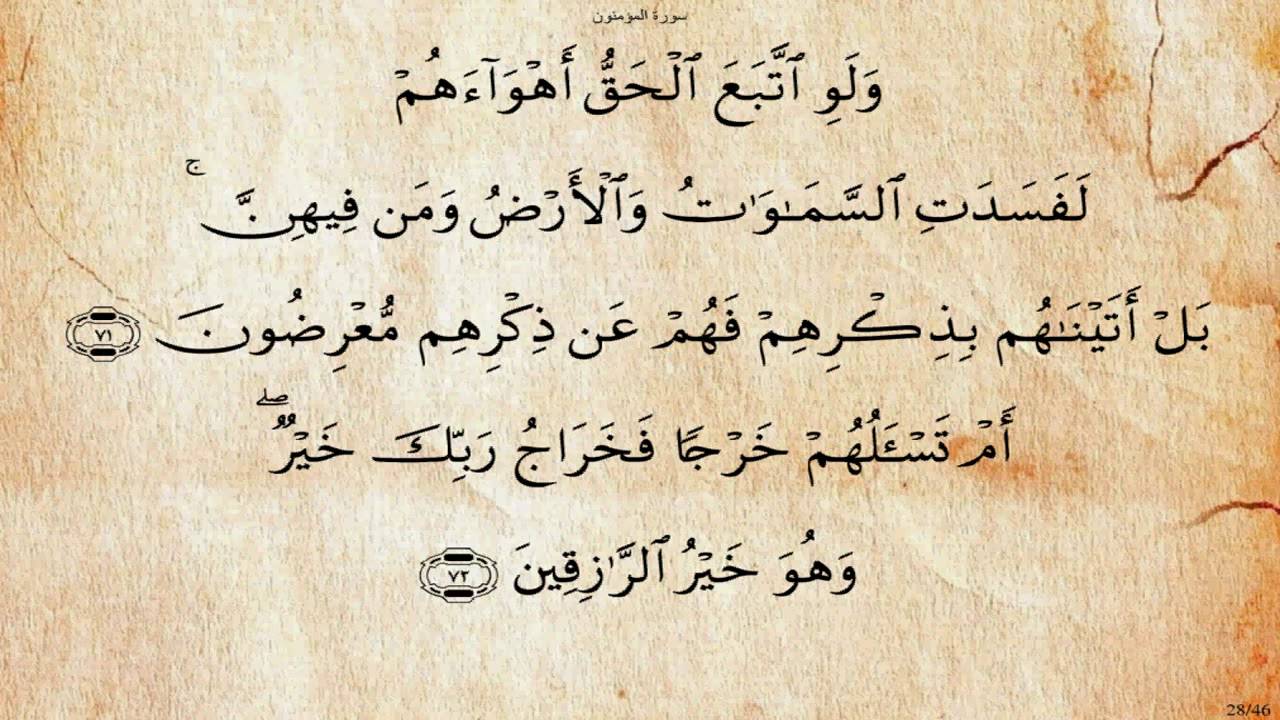 سورة المؤمنون
وَلَوِ ٱتَّبَعَ ٱلْحَقُّ أَهْوَآءَهُمْ
لَفَسَدَتِ ٱلسَّمَـٰوَٰتُ وَٱلْأَرْضُ وَمَن فِيهِنَّ ۚ
بَلْ أَتَيْنَـٰهُم بِذِكْرِهِمْ فَهُمْ عَن ذِكْرِهِم مُّعْرِضُونَ ﴿٧١﴾
أَمْ تَسْـَٔلُهُمْ خَرْجًا فَخَرَاجُ رَبِّكَ خَيْرٌ ۖ
وَهُوَ خَيْرُ ٱلرَّٰزِقِينَ ﴿٧٢﴾
28/46